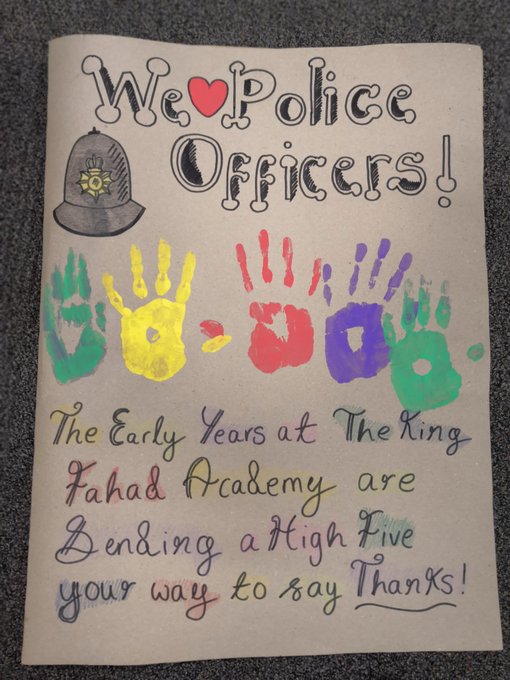 We ❤ Police
Officers!
The Early Years at The King
Fahad Academy are
Sending a High Five
your way to say Thanks!